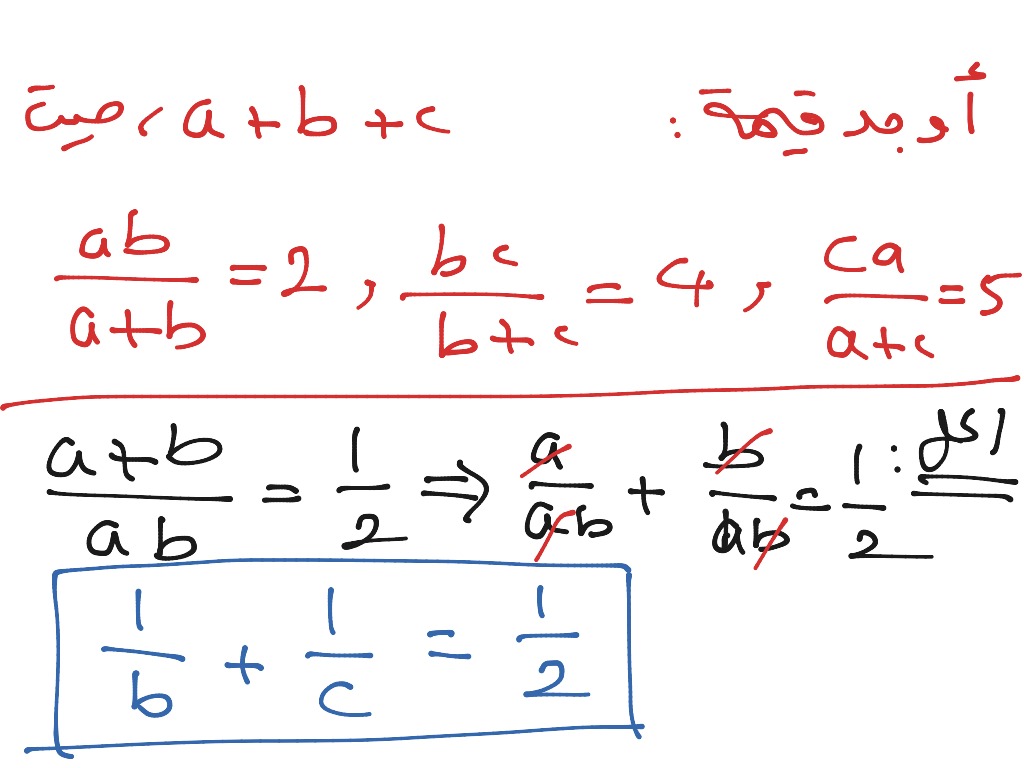 أوجد قيمة: a+b+c، حيث
ab/a+b = 2 , bc/b+c = 4 , ca/a+c = 5
الحل:
a+b/ab = 1/2 ⇒ a/ab + b/ab = 1/2
1/b + 1/c = 1/2